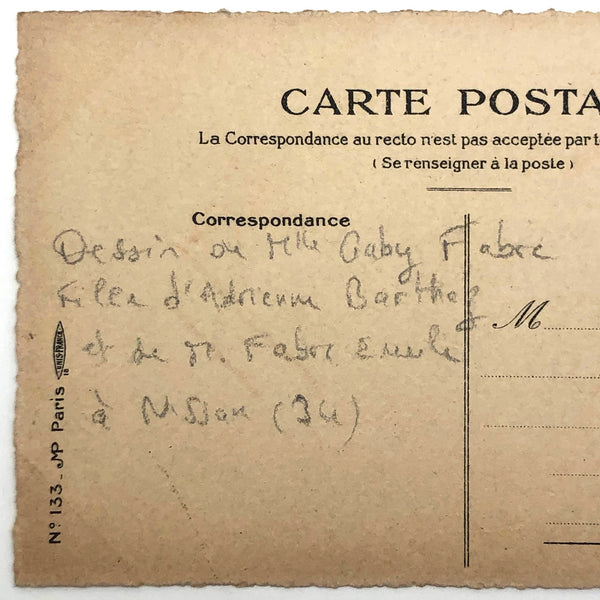 CARTE POSTA
La Correspondance au recto n'est pas acceptée par t
(Se renseigner à la poste)
Correspondance
Dessin de Mlle Gaby Fabre
Fille d'Adrienne Barthez
et de M. Fabre Emile
à Nissan (34)
M
UNIS-FRANCE
Nº 133 - MP Paris